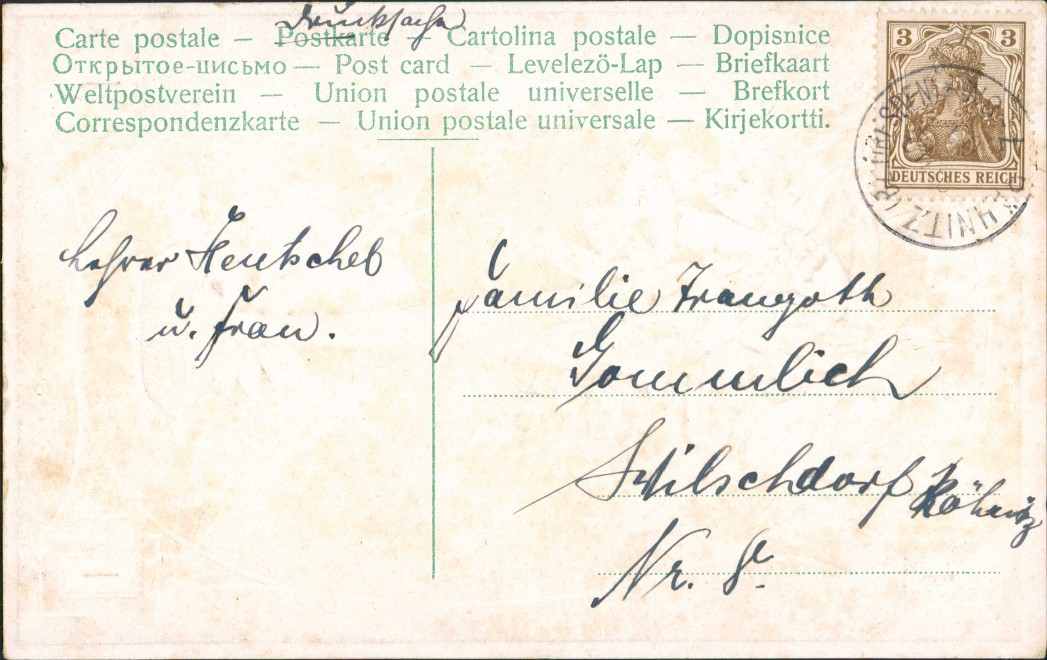 Drucksache
Carte postale — Postkarte — Cartolina postale — Dopisnice
Открытое-письмо — Post card — Levelező-Lap — Briefkaart
Weltpostverein — Union postale universelle — Brefkort
Correspondenzkarte — Union postale universale — Kirjekortti.
3 3
DEUTSCHES REICH
Lehrer Hentschel
u. Frau.
Familie Traugoth
Gommlich
Wilschdorf
Nr. 8.